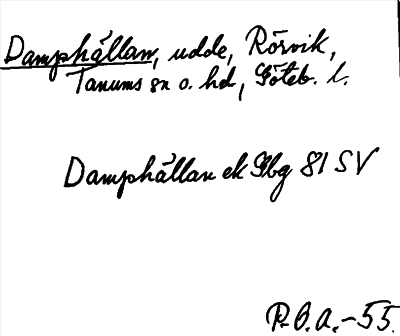 Damphållan, udde, Rörvik,
Tanums sn o. hd, Göteb. l.
Damphållan ek Gbg 81 SV
P.B.A.-55.